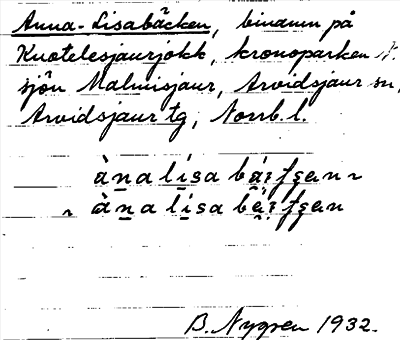 Anna-Lisabäcken, binamn på
Kuotelesjaurjokk, kronoparken N.
sjön Malmisjaur, Arvidsjaur sn,
Arvidsjaur tg, Norrb. l.
àna lísa
àna lísa
B. Nygren 1932.